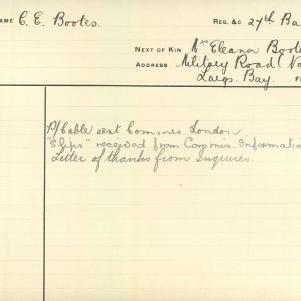 NAME C. E. Bootes.
REG. &C 27th Ba
NEXT OF KIN Mrs Eleanor Boote
ADDRESS Military Road
Largs. Bay.
P/Cable sent Commis London
"Slips" received from Commis. Informatio
Letter of thanks from Inquirer.